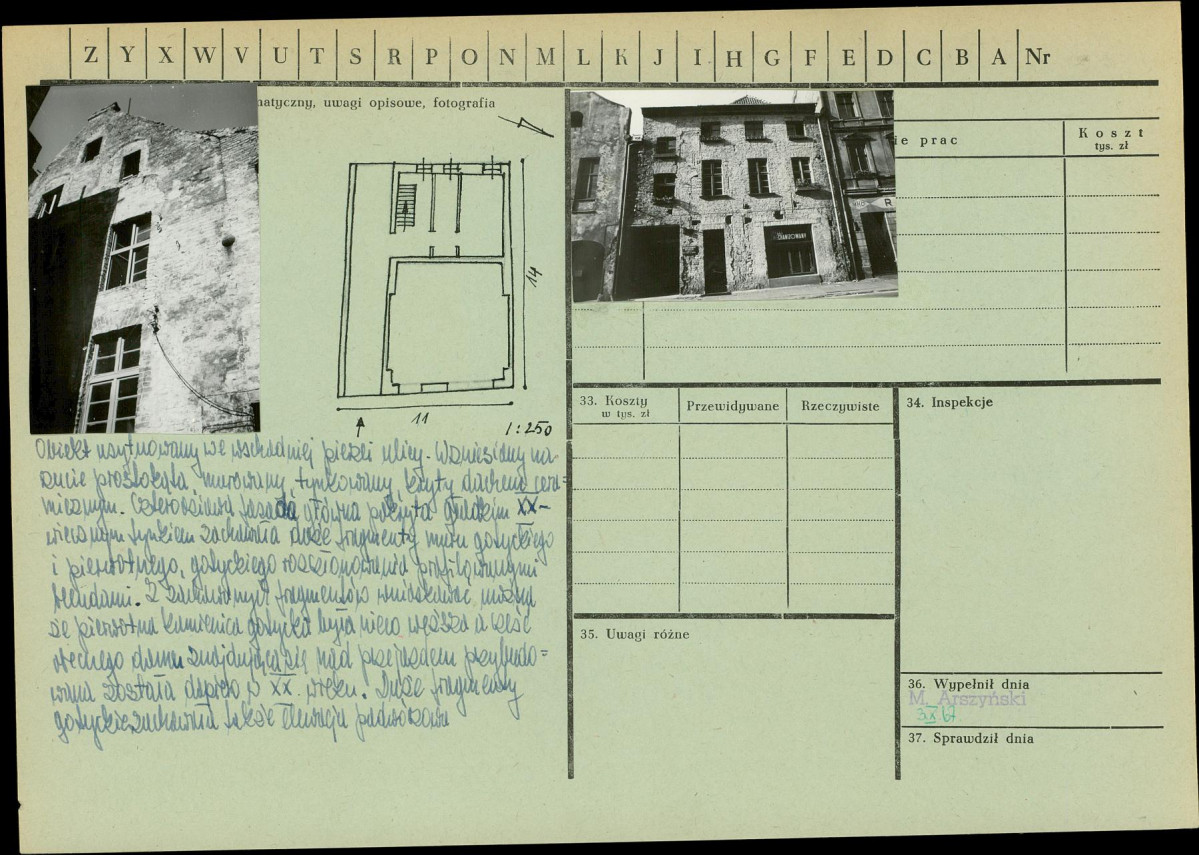 Z Y X W V U T S R P O N M L K J I H G F E D C B A Nr
natyczny, uwagi opisowe, fotografia
14
11
1:250
Obiekt usytuowany we wschodniej pierzei ulicy. Wzniesiony na
rzucie prostokąta murowany, tynkowany, kryty dachem cera=
micznym. Czteroosiowa fasada główna pokryta gładkim XX-
wiecznym tynkiem zachowała duże fragmenty muru gotyckiego
i pierwotnego, gotyckiego rozczłonowania profilowanymi
blendami. Z zachowanych fragmentów wnioskować można
że pierwotna kamienica gotycka była nieco węższa a część
obecnego domu znajdująca się nad przejazdem przybudo=
wana została dopiero w XX. wieku. Duże fragmenty
gotyckie zachowała także elewacja podwórzowa
ie prac
Koszt
tys. zł
33. Koszty
w tys. zł
Przewidywane
Rzeczywiste
34. Inspekcje
35. Uwagi różne
36. Wypełnił dnia
M. Arszyński
3.X 67
37. Sprawdził dnia